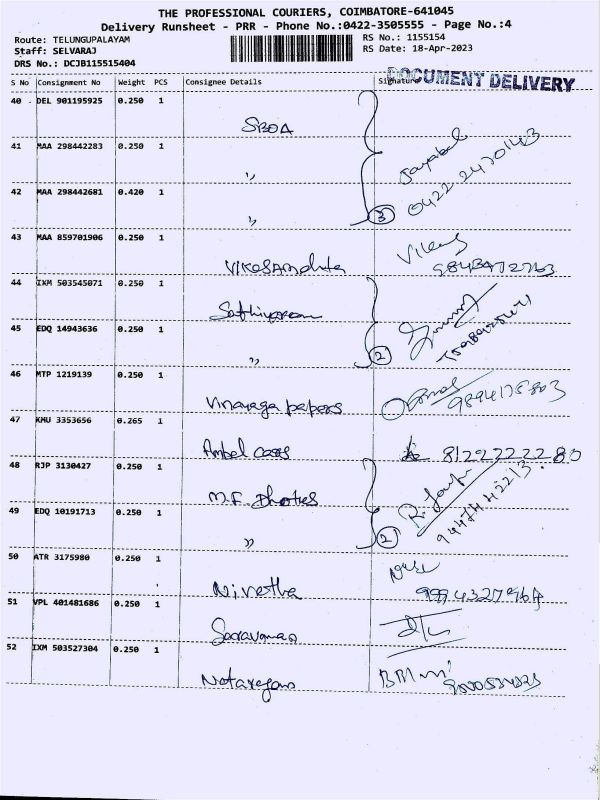 THE PROFESSIONAL COURIERS, COIMBATORE-641045
Delivery Runsheet - PRR - Phone No.:0422-3505555 - Page No.:4
Route: TELUNGUPALAYAM
RS No.: 1155154
Staff: SELVARAJ
RS Date: 18-Apr-2023
DRS No.: DCJB115515404
DOCUMENT DELIVERY
S No Consignment No Weight PCS Consignee Details Signature
40 DEL 901195925 0.250 1
SBOA
41 MAA 298442283 0.250 1
"
42 MAA 298442681 0.420 1
" 3
43 MAA 859701906 0.250 1
44 IXM 503545071 0.250 1
45 EDQ 14943636 0.250 1
" 2
46 MTP 1219139 0.250 1
Vinayaga papers
47 KMU 3353656 0.265 1
Ambal cars 8122222280
48 RJP 3130427 0.250 1
M.F. Dhoties
49 EDQ 10191713 0.250 1
" 2
50 ATR 3175980 0.250 1
Nivetha
51 VPL 401481686 0.250 1
52 IXM 503527304 0.250 1